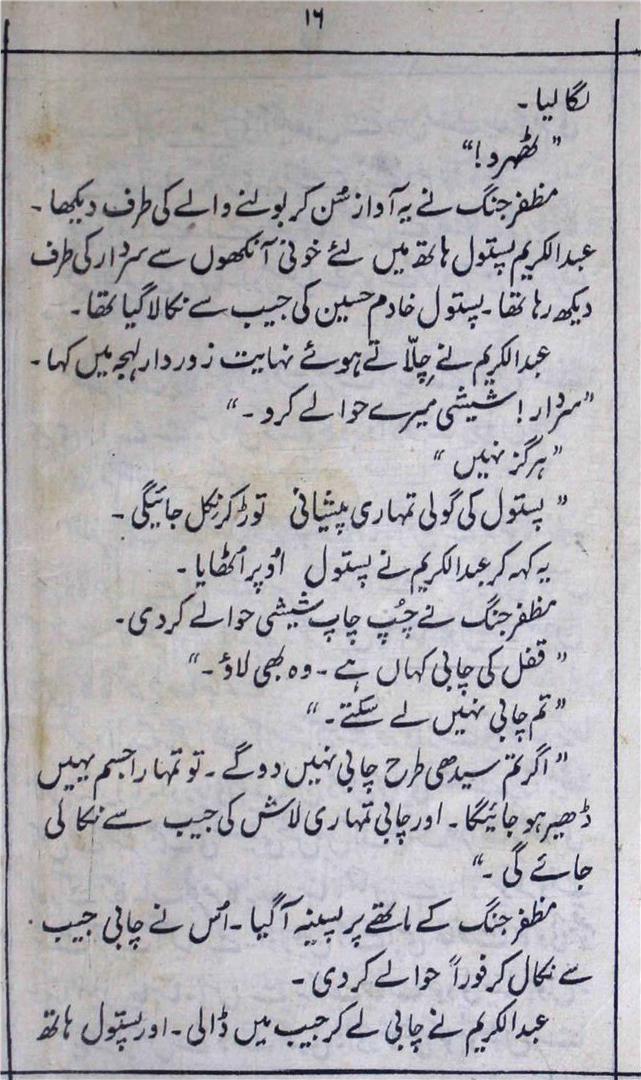 ۱۶
لگا لیا۔
”ٹھہرو!“
مظفر جنگ نے یہ آواز سُن کر بولنے والے کی طرف دیکھا۔
عبدالکریم پستول ہاتھ میں لئے خونی آنکھوں سے سردار کی طرف
دیکھ رہا تھا۔ پستول خادم حسین کی جیب سے نکالا گیا تھا۔
عبدالکریم نے چِلّاتے ہوئے نہایت زوردار لہجہ میں کہا۔
”سردار! شیشی میرے حوالے کرو۔“
”ہرگز نہیں“
”پستول کی گولی تمہاری پیشانی توڑ کر نکل جائیگی۔
یہ کہہ کر عبدالکریم نے پستول اُوپر اُٹھایا۔
مظفر جنگ نے چُپ چاپ شیشی حوالے کر دی۔
”قفل کی چابی کہاں ہے۔ وہ بھی لاؤ۔“
”تم چابی نہیں لے سکتے۔“
”اگر تم سیدھی طرح چابی نہیں دو گے۔ تو تمہارا جسم یہیں
ڈھیر ہو جائیگا۔ اور چابی تمہاری لاش کی جیب سے نکالی
جائے گی۔“
مظفر جنگ کے ماتھے پر پسینہ آگیا۔ اُس نے چابی جیب
سے نکال کر فوراً حوالے کر دی۔
عبدالکریم نے چابی لے کر جیب میں ڈالی۔ اور پستول ہاتھ